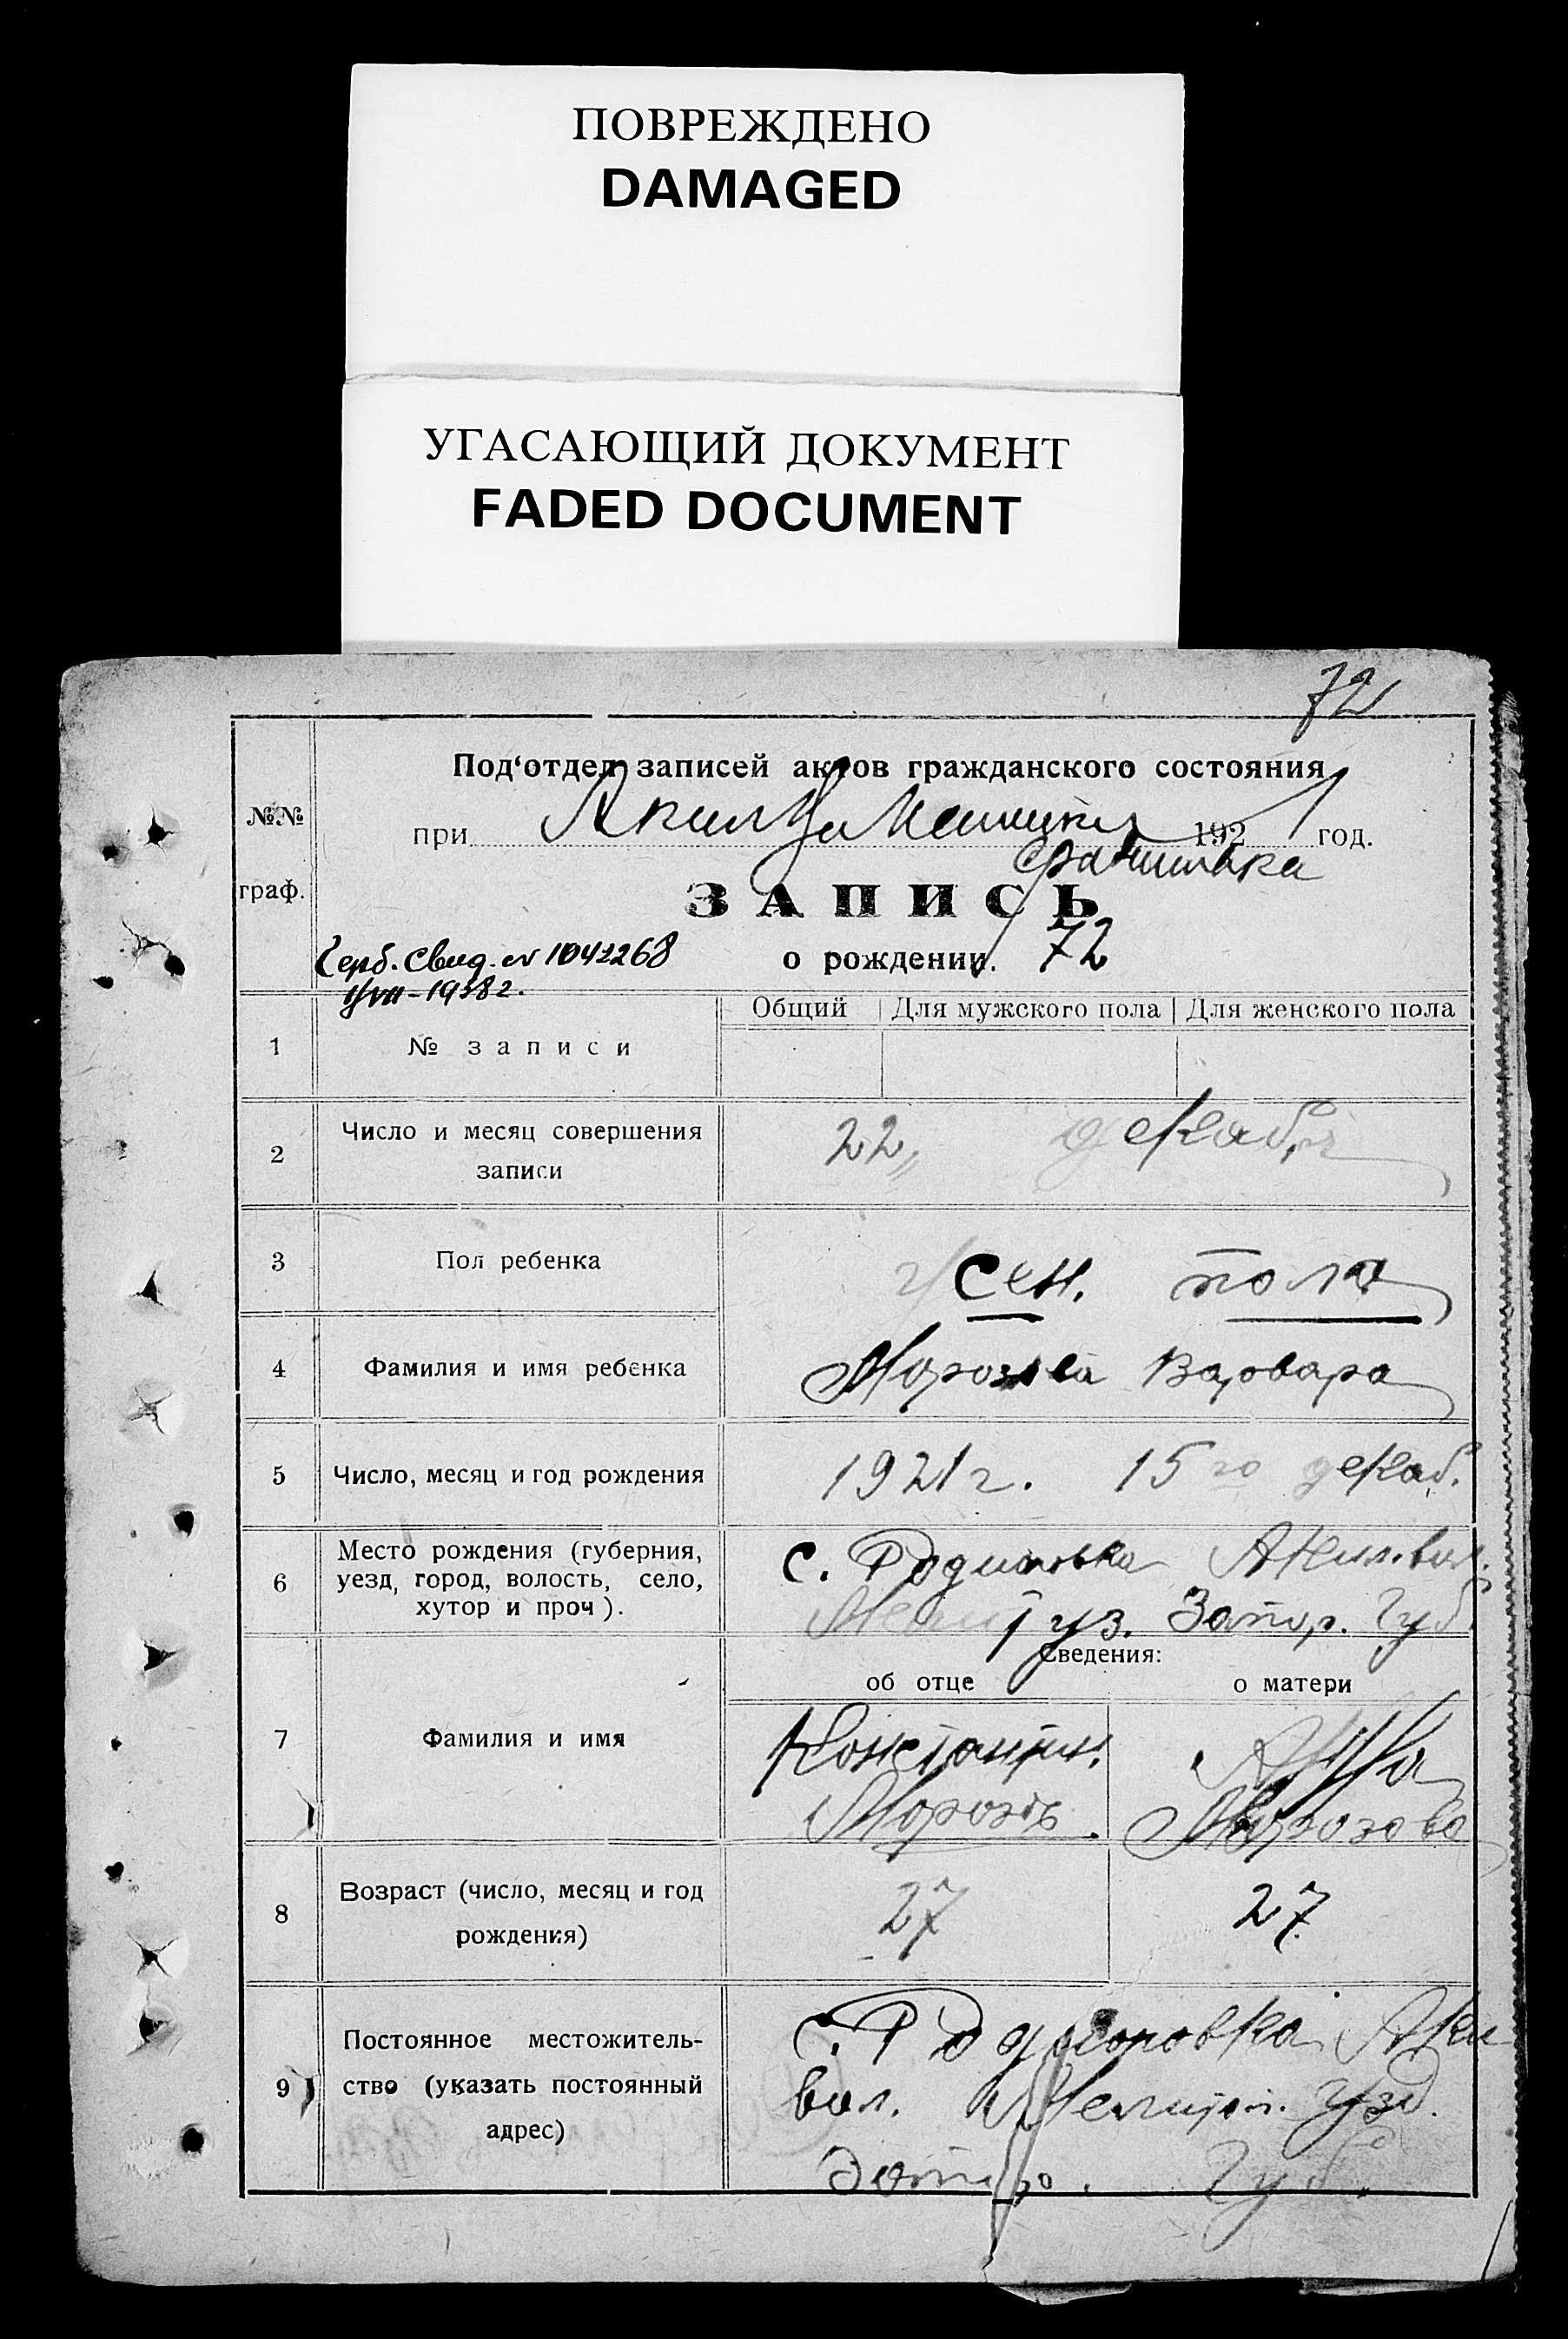 ПОВРЕЖДЕНО
DAMAGED
УГАСАЮЩИЙ ДОКУМЕНТ
FADED DOCUMENT
72
Под‘отдел записей актов гражданского состояния
№№
при 1921 год.
граф.
ЗАПИСЬ
Герб. Свид. № 1042268
о рождении. 72
VII-1938 г.
Общий Для мужского пола Для женского пола
1 № записи
2 Число и месяц совершения
записи
22 декабря
3 Пол ребенка
жен. пола
4 Фамилия и имя ребенка
Морозова Варвара
5 Число, месяц и год рождения
1921 г. 15го декаб.
6 Место рождения (губерния,
уезд, город, волость, село,
хутор и проч).
с. Родионовка Аким. вол.
Мелит уз. Запор. Губ
Сведения:
об отце о матери
7 Фамилия и имя
Константин. Анна
Морозов. Морозова
8 Возраст (число, месяц и год
рождения)
27 27
9 Постоянное местожитель-
ство (указать постоянный
адрес)
с. Родионовка Аки
вол. Мелитоп. Узд.
Запор. Губ.